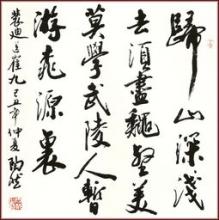 歸山深淺
去須盡丘壑美
莫學武陵人暫
游桃源裏
裴迪送崔九己丑年仲夏